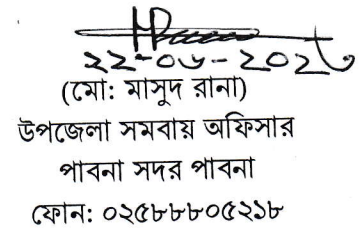 (মো: মাসুদ রানা)
উপজেলা সমবায় অফিসার
পাবনা সদর পাবনা
ফোন: ০২৫৮৮৮০৫২১৮